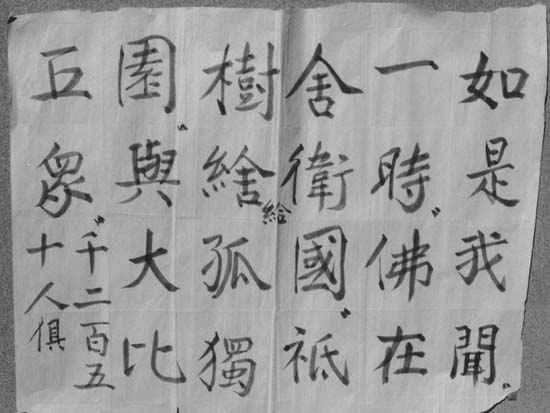 如是我聞
一時佛在
舍衛國祗
樹給孤獨
園與大比
丘眾千二百五
十人俱